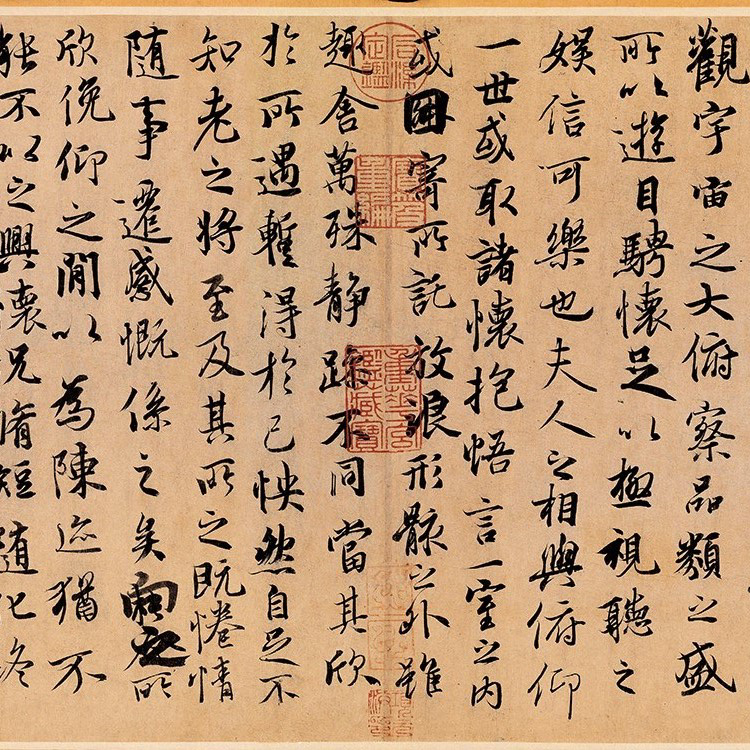 觀宇宙之大俯察品類之盛
所以遊目騁懷足以極視聽之
娛信可樂也夫人之相與俯仰
一世或取諸懷抱悟言一室之內
或因寄所託放浪形骸之外雖
趣舍萬殊静躁不同當其欣
於所遇暫得於己怏然自足不
知老之將至及其所之既惓情
隨事遷感慨係之矣向之所
欣俛仰之閒以為陳迹猶不
能不以之興懷況脩短隨化終